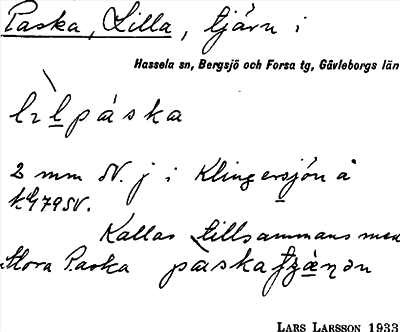 Paska, Lilla, tjärn i
Hassela sn, Bergsjö och Forsa tg, Gävleborgs län
lɩlpáska
2 mm SV. j i Klingersjön å
kbl 79 SV.
Kallas tillsammans med
Stora Paska páska
LARS LARSSON 1933